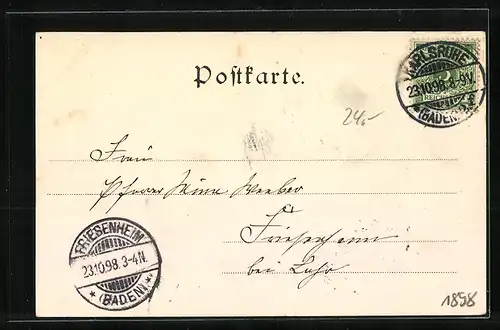 Postkarte.
KARLSRUHE
23.10.98.8-9V.
*(BADEN)
REICHSPOST
24.-
Frau
Pfarrer
Friesenheim
bei Lahr
FRIESENHEIM
23.10.98.3-4N.
*(BADEN)*
1898